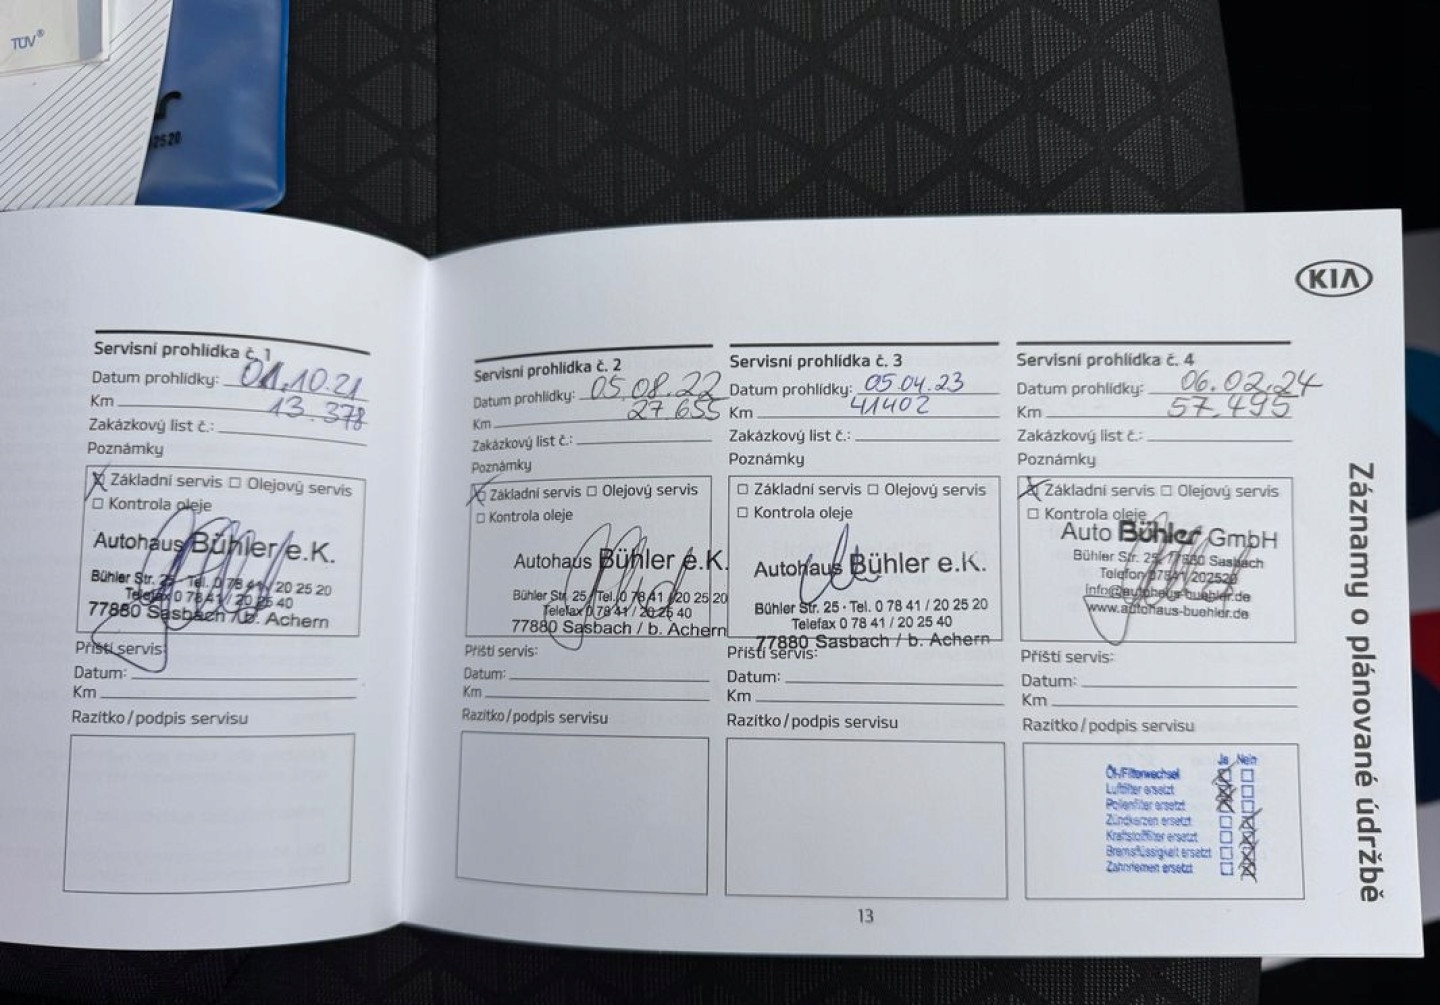 TÜV®
2520
KIA
Servisní prohlídka č. 1
Datum prohlídky: 01.10.21
Km 13.378
Zakázkový list č.:
Poznámky
Základní servis Olejový servis
Kontrola oleje
Autohaus Bühler e.K.
Bühler Str. 25 · Tel. 0 78 41 / 20 25 20
Telefax 0 78 41 / 20 25 40
77880 Sasbach / b. Achern
Příští servis:
Datum:
Km
Razítko/podpis servisu
Servisní prohlídka č. 2
Datum prohlídky: 05.08.22
Km 27 655
Zakázkový list č.:
Poznámky
Základní servis Olejový servis
Kontrola oleje
Autohaus Bühler e.K.
Bühler Str. 25 · Tel. 0 78 41 / 20 25 20
Telefax 0 78 41 / 20 25 40
77880 Sasbach / b. Achern
Příští servis:
Datum:
Km
Razítko/podpis servisu
Servisní prohlídka č. 3
Datum prohlídky: 05.04.23
Km 41402
Zakázkový list č.:
Poznámky
Základní servis Olejový servis
Kontrola oleje
Autohaus Bühler e.K.
Bühler Str. 25 · Tel. 0 78 41 / 20 25 20
Telefax 0 78 41 / 20 25 40
77880 Sasbach / b. Achern
Příští servis:
Datum:
Km
Razítko/podpis servisu
Servisní prohlídka č. 4
Datum prohlídky: 06.02.24
Km 57.495
Zakázkový list č.:
Poznámky
Základní servis Olejový servis
Kontrola oleje
Auto Bühler GmbH
Bühler Str. 25, 77880 Sasbach
Telefon 07841/202520
info@autohaus-buehler.de
www.autohaus-buehler.de
Příští servis:
Datum:
Km
Razítko/podpis servisu
Ja Nein
Öl-/Filterwechsel
Luftfilter ersetzt
Pollenfilter ersetzt
Zündkerzen ersetzt
Kraftstofffilter ersetzt
Bremsflüssigkeit ersetzt
Zahnriemen ersetzt
Záznamy o plánované údržbě
13